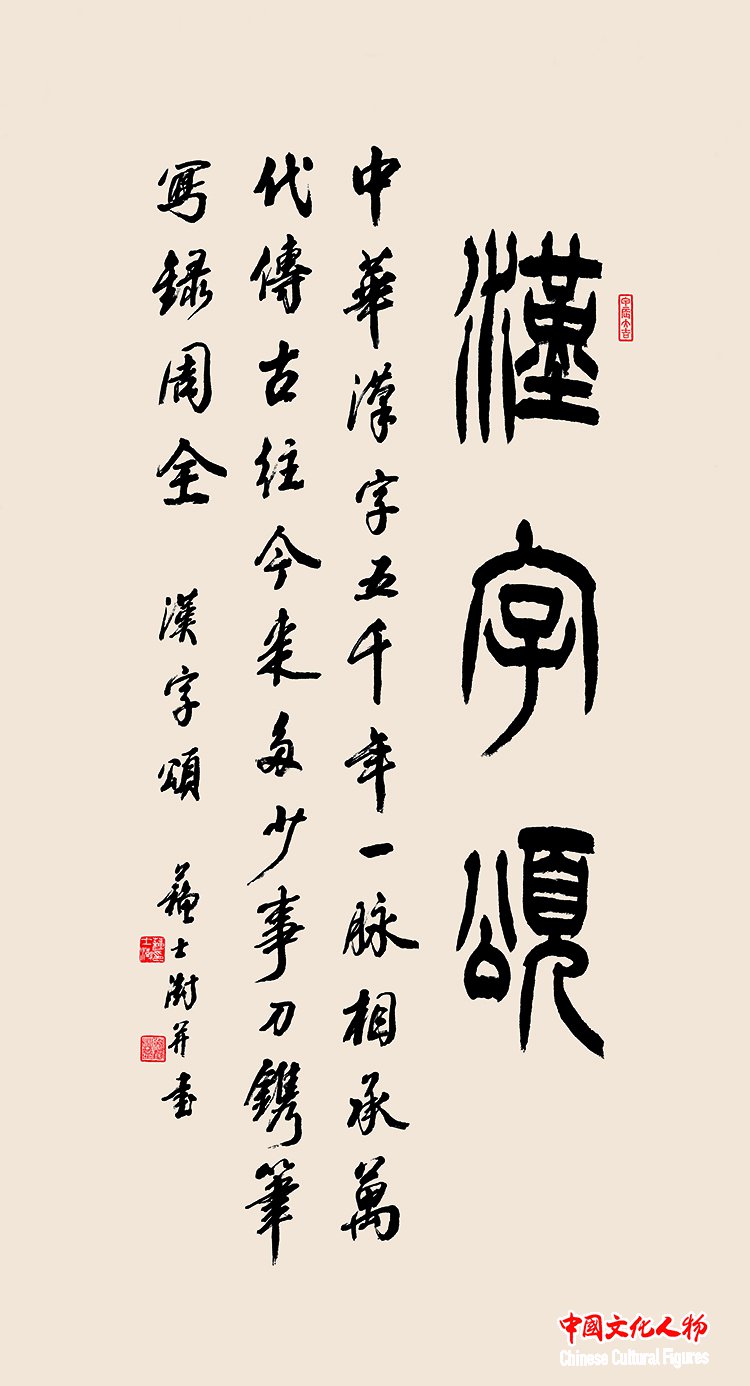 漢字頌
中華漢字五千年一脉相承萬
代傳古往今来多少事刀鐫筆
寫録周全 漢字頌 蘇士澍并書
甲辰大吉
中國文化人物
Chinese Cultural Figures